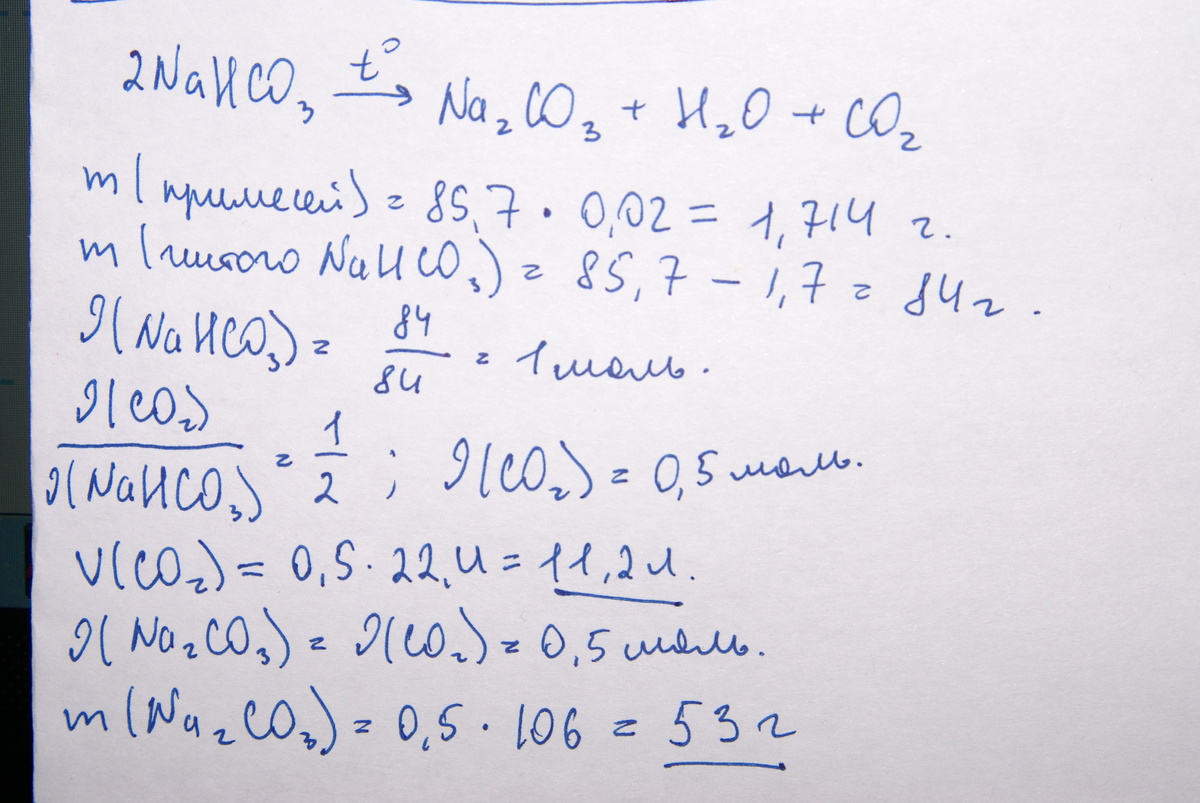 2NaHCO₃ t° → Na₂CO₃ + H₂O + CO₂
m(примесей) = 85,7 · 0,02 = 1,714 г.
m(чистого NaHCO₃) = 85,7 − 1,7 = 84 г.
ν(NaHCO₃) = 84/84 = 1 моль.
ν(CO₂)/ν(NaHCO₃) = 1/2 ; ν(CO₂) = 0,5 моль.
V(CO₂) = 0,5 · 22,4 = 11,2 л.
ν(Na₂CO₃) = ν(CO₂) = 0,5 моль.
m(Na₂CO₃) = 0,5 · 106 = 53 г